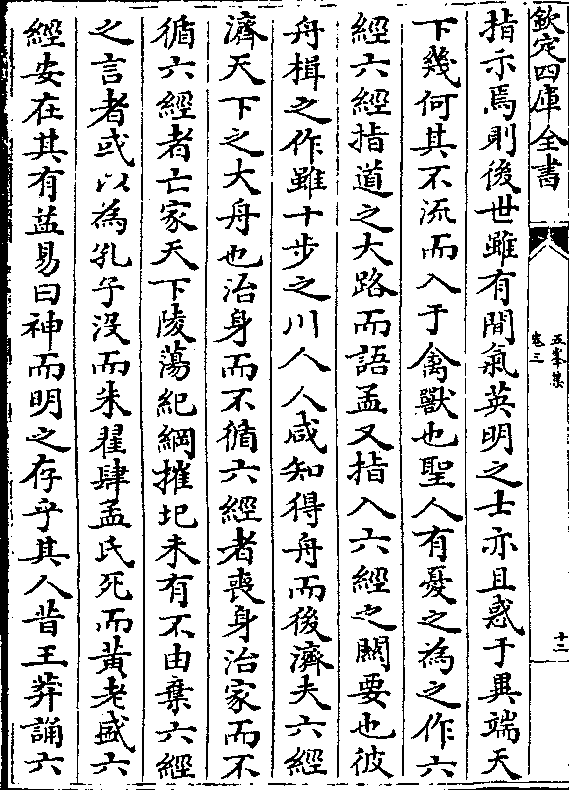 欽定四庫全書
五峯集
卷三
十三
指示焉則後世雖有閒氣英明之士亦且惑于異端天
下幾何其不流而入于禽獸也聖人有憂之為之作六
經六經指道之大路而語孟又指入六經之闗要也彼
舟楫之作雖十步之川人人咸知得舟而後濟夫六經
濟天下之大舟也治身而不循六經者喪身治家而不
循六經者亡家天下陵蕩紀綱摧圮未有不由棄六經
之言者或以為孔子沒而朱翟肆孟氏死而黃老盛六
經安在其有益易曰神而明之存乎其人昔王莽誦六